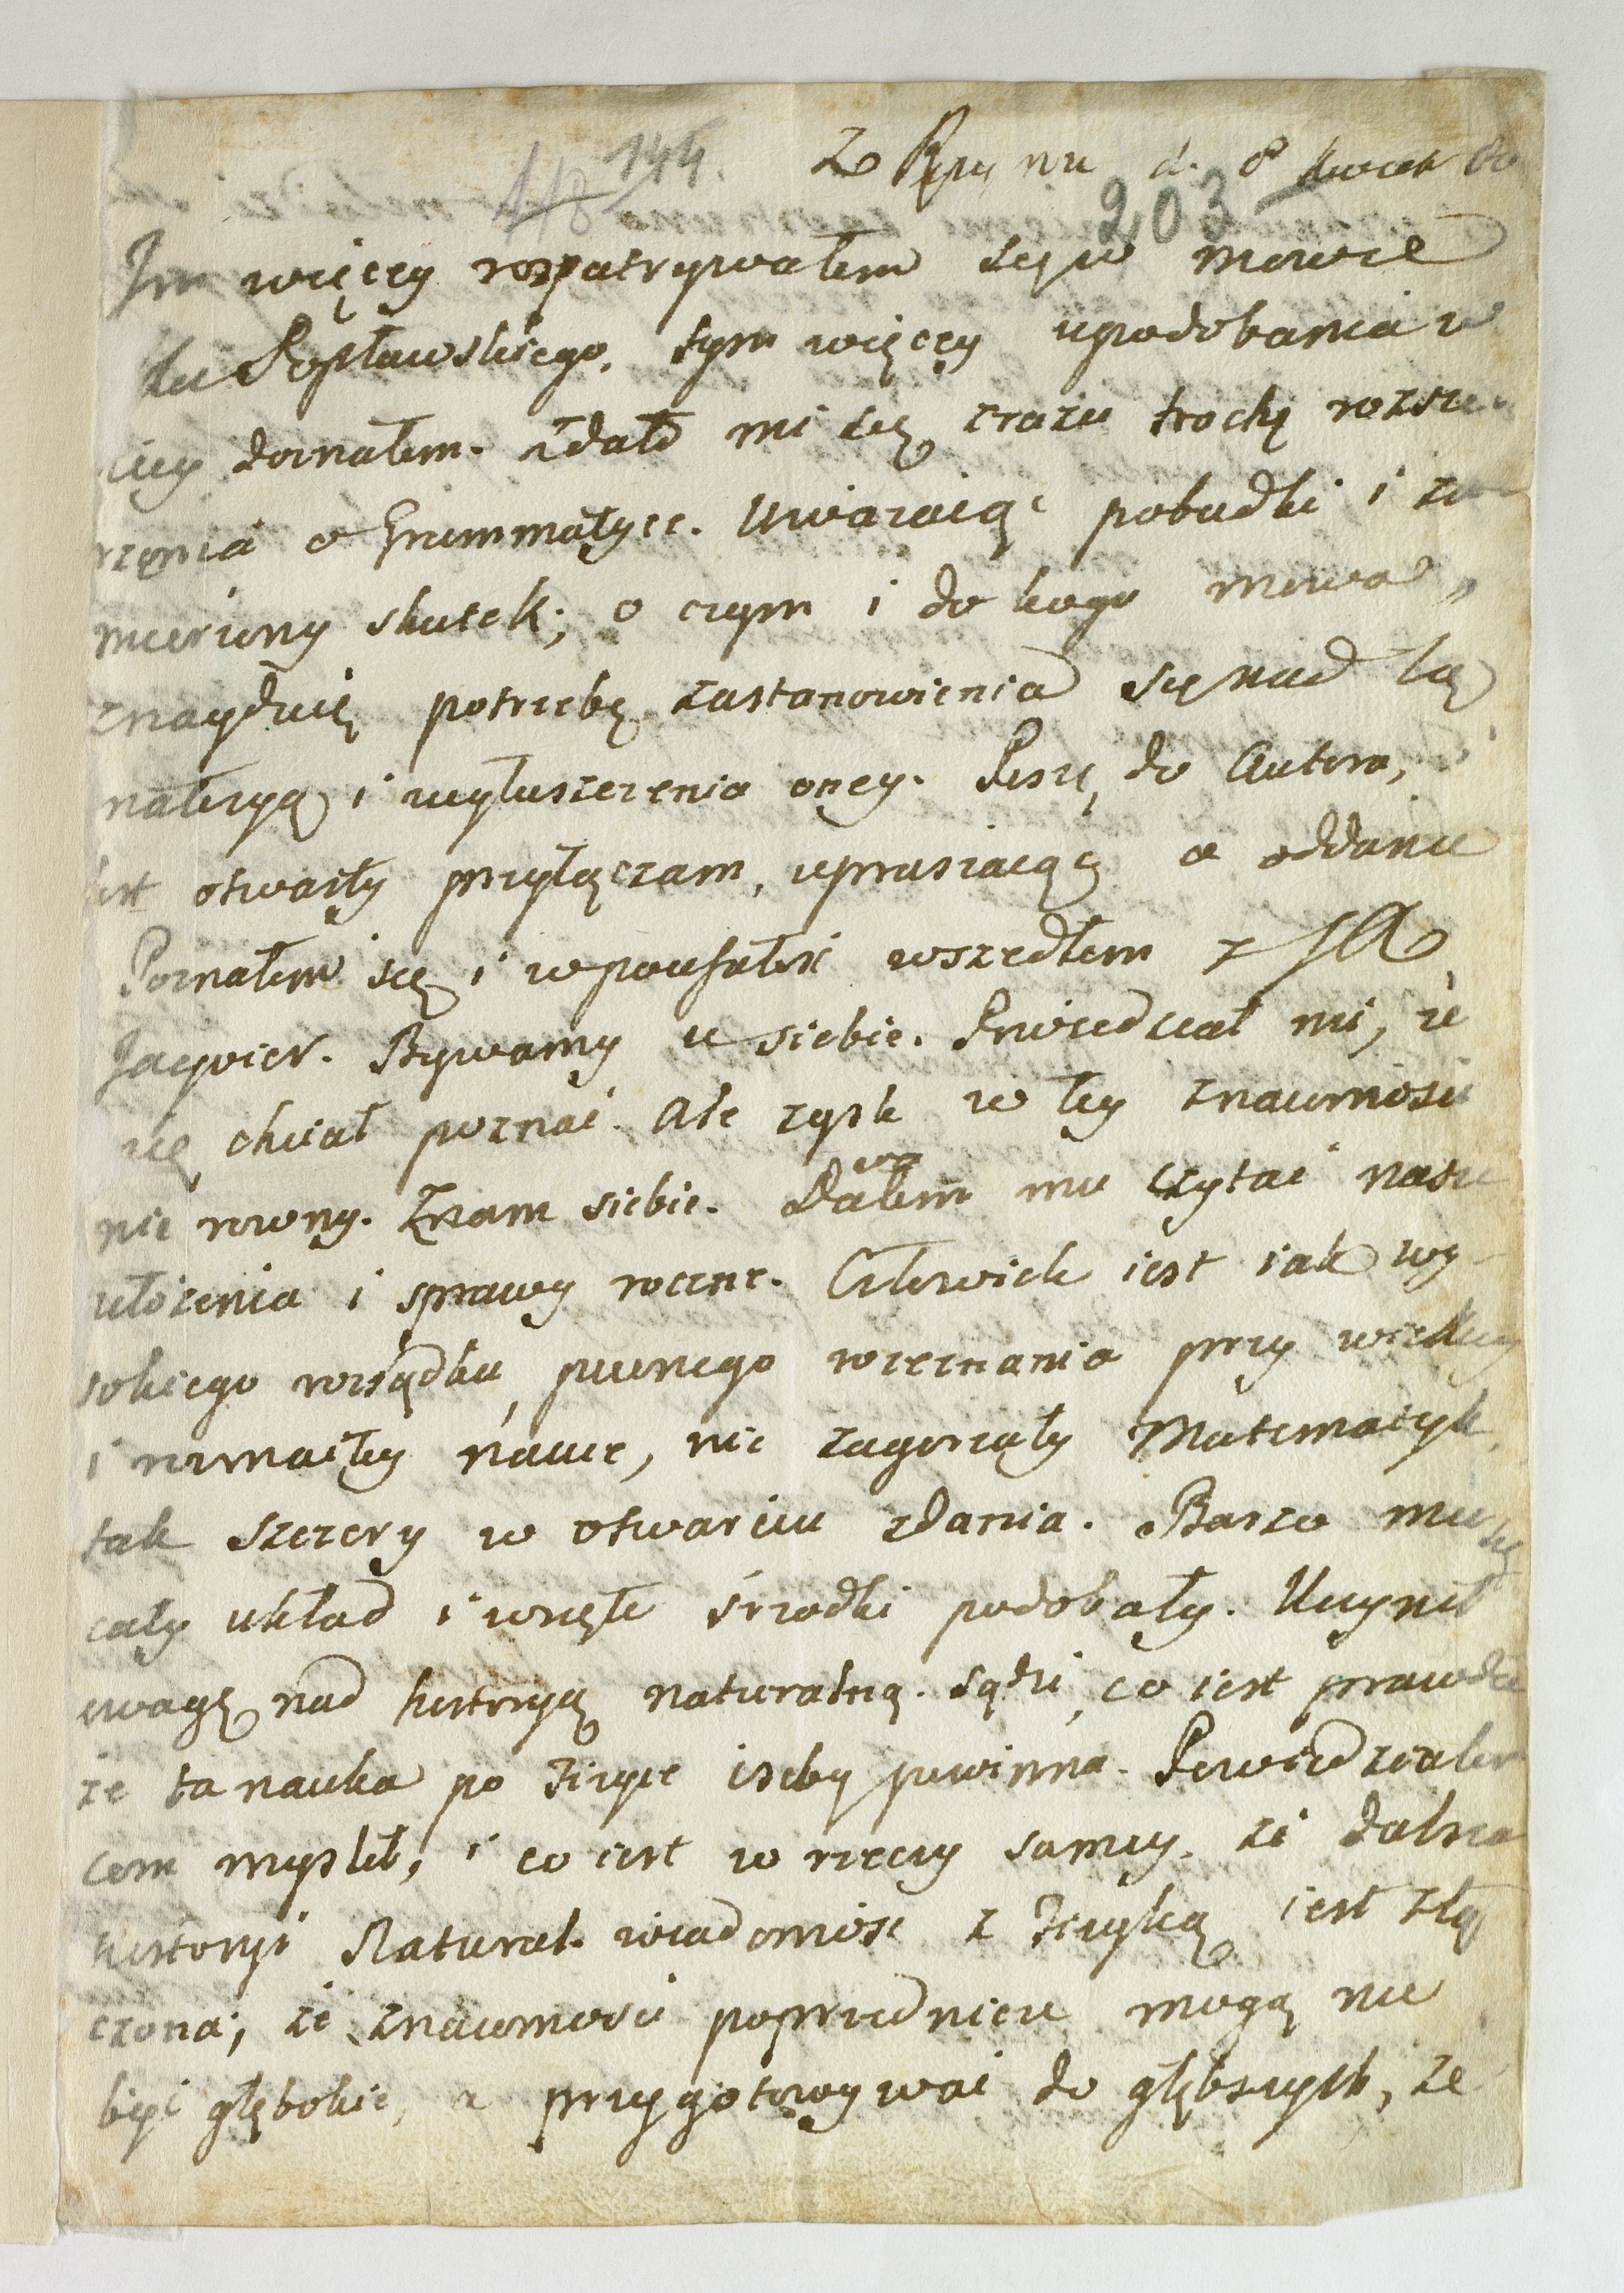 144.
118
Z Rzymu d. 8 kwiet 80
203
Im więcey rozpatrywałem się w mowie
Popławskiego, tym więcey upodobania w
niey doznałem. Zdało mi się zrazu trochę rozsze-
rzenia o Grammatyce. Uważaiąc pobudki i za-
mierzony skutek; o czym i do kogo mowa,
znayduię potrzebę zastanowienia się nad tą
materyą i wyłuszczenia oney. Piszę do Autora,
list otwarty przyłączam, upraszaiąc o oddanie
Poznałem się i w poufałość wszedłem z
Jaquier. Bywamy u siebie. Powiedział mi, że
się chciał poznać. Ale zysk w tey znaiomości
nie rowny. Znam siebie. Dałem mu czytać nasze
ułożenia i sprawy roczne. Człowiek iest iak wy-
sokiego rozsądku, pewnego wieznania przy wielkiey
i rozmaitey nauce, nie zagorzały Matematyk,
tak szczery w otwarciu zdania. Barzo mu się
cały układ i wzięte śrzodki podobały. Uczynił
uwagę nad historyą naturalną. Sądzi, co iest prawdą
że ta nauka po Fizyce iśćby powinna. Powiedziałem
com myślił, i co iest w rzeczy samey, że dalsza
historyi Natural. wiadomość z Fizyką iest złą-
czona; że znaiomości poprzednicze mogą nie
być głębokie, a przygotowywać do głębszych, że